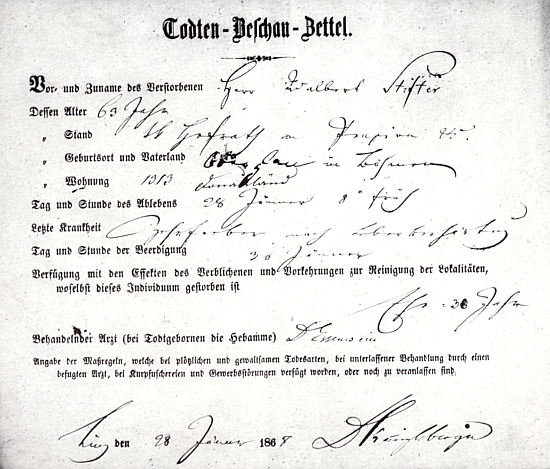 Todten-Beschau-Zettel.
Vor- und Zuname des Verstorbenen Herr Adalbert Stifter
Dessen Alter 63 Jahr
„ Stand k k Hofrath in Pension
„ Geburtsort und Vaterland in Böhmen
„ Wohnung 1313 Donauländ
Tag und Stunde des Ablebens 28 Jänner 8 " früh
Letzte Krankheit Zehrfieber nach Leberverhärtung
Tag und Stunde der Beerdigung 30 Jänner
Verfügung mit den Effekten des Verblichenen und Vorkehrungen zur Reinigung der Lokalitäten,
woselbst dieses Individuum gestorben ist
Ehe = 30 Jahr
Behandelnder Arzt (bei Todtgebornen die Hebamme)
Angabe der Maßregeln, welche bei plötzlichen und gewaltsamen Todesarten, bei unterlassener Behandlung durch einen
befugten Arzt, bei Kurpfuschereien und Gewerbsstörungen verfügt worden, oder noch zu veranlassen sind.
Linz den 28 Jänner 1868